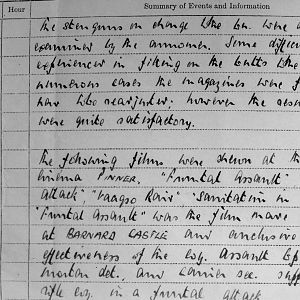 Hour Summary of Events and Information
the stenguns on charge to the bn. were a
examined by the armourer. Some difficu
experienced in firing on the butts
numerous cases the magazines were f
have to be readjusted; however the resu
were quite satisfactory.
The following films were shewn at th
Cinema PINNER. "Frontal Assault"
Attack", "Vaagso Raid" "Sanitation in
"Frontal Assault" was the film made
at BARNARD CASTLE and
effectiveness of the coy. assault
mortar det. and carrier sec. supp
rifle coy. in a frontal attack